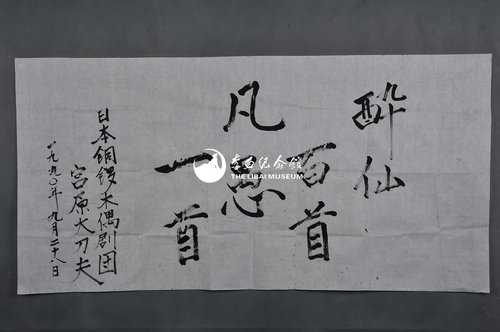 酔仙
百首
凡愚
一首
日本铜锣木偶剧团
宮原大刀夫
一九九〇年九月二十八日
李白纪念馆
THE LIBAI MUSEUM